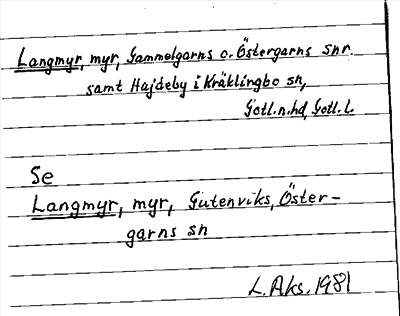 Langmyr, myr, Gammelgarns o. Östergarns snr.
samt Hajdeby i Kräklingbo sn,
Gotl. n. hd, Gotl. l.
Se
Langmyr, myr, Gutenviks, Öster-
garns sn
L. Aks. 1981